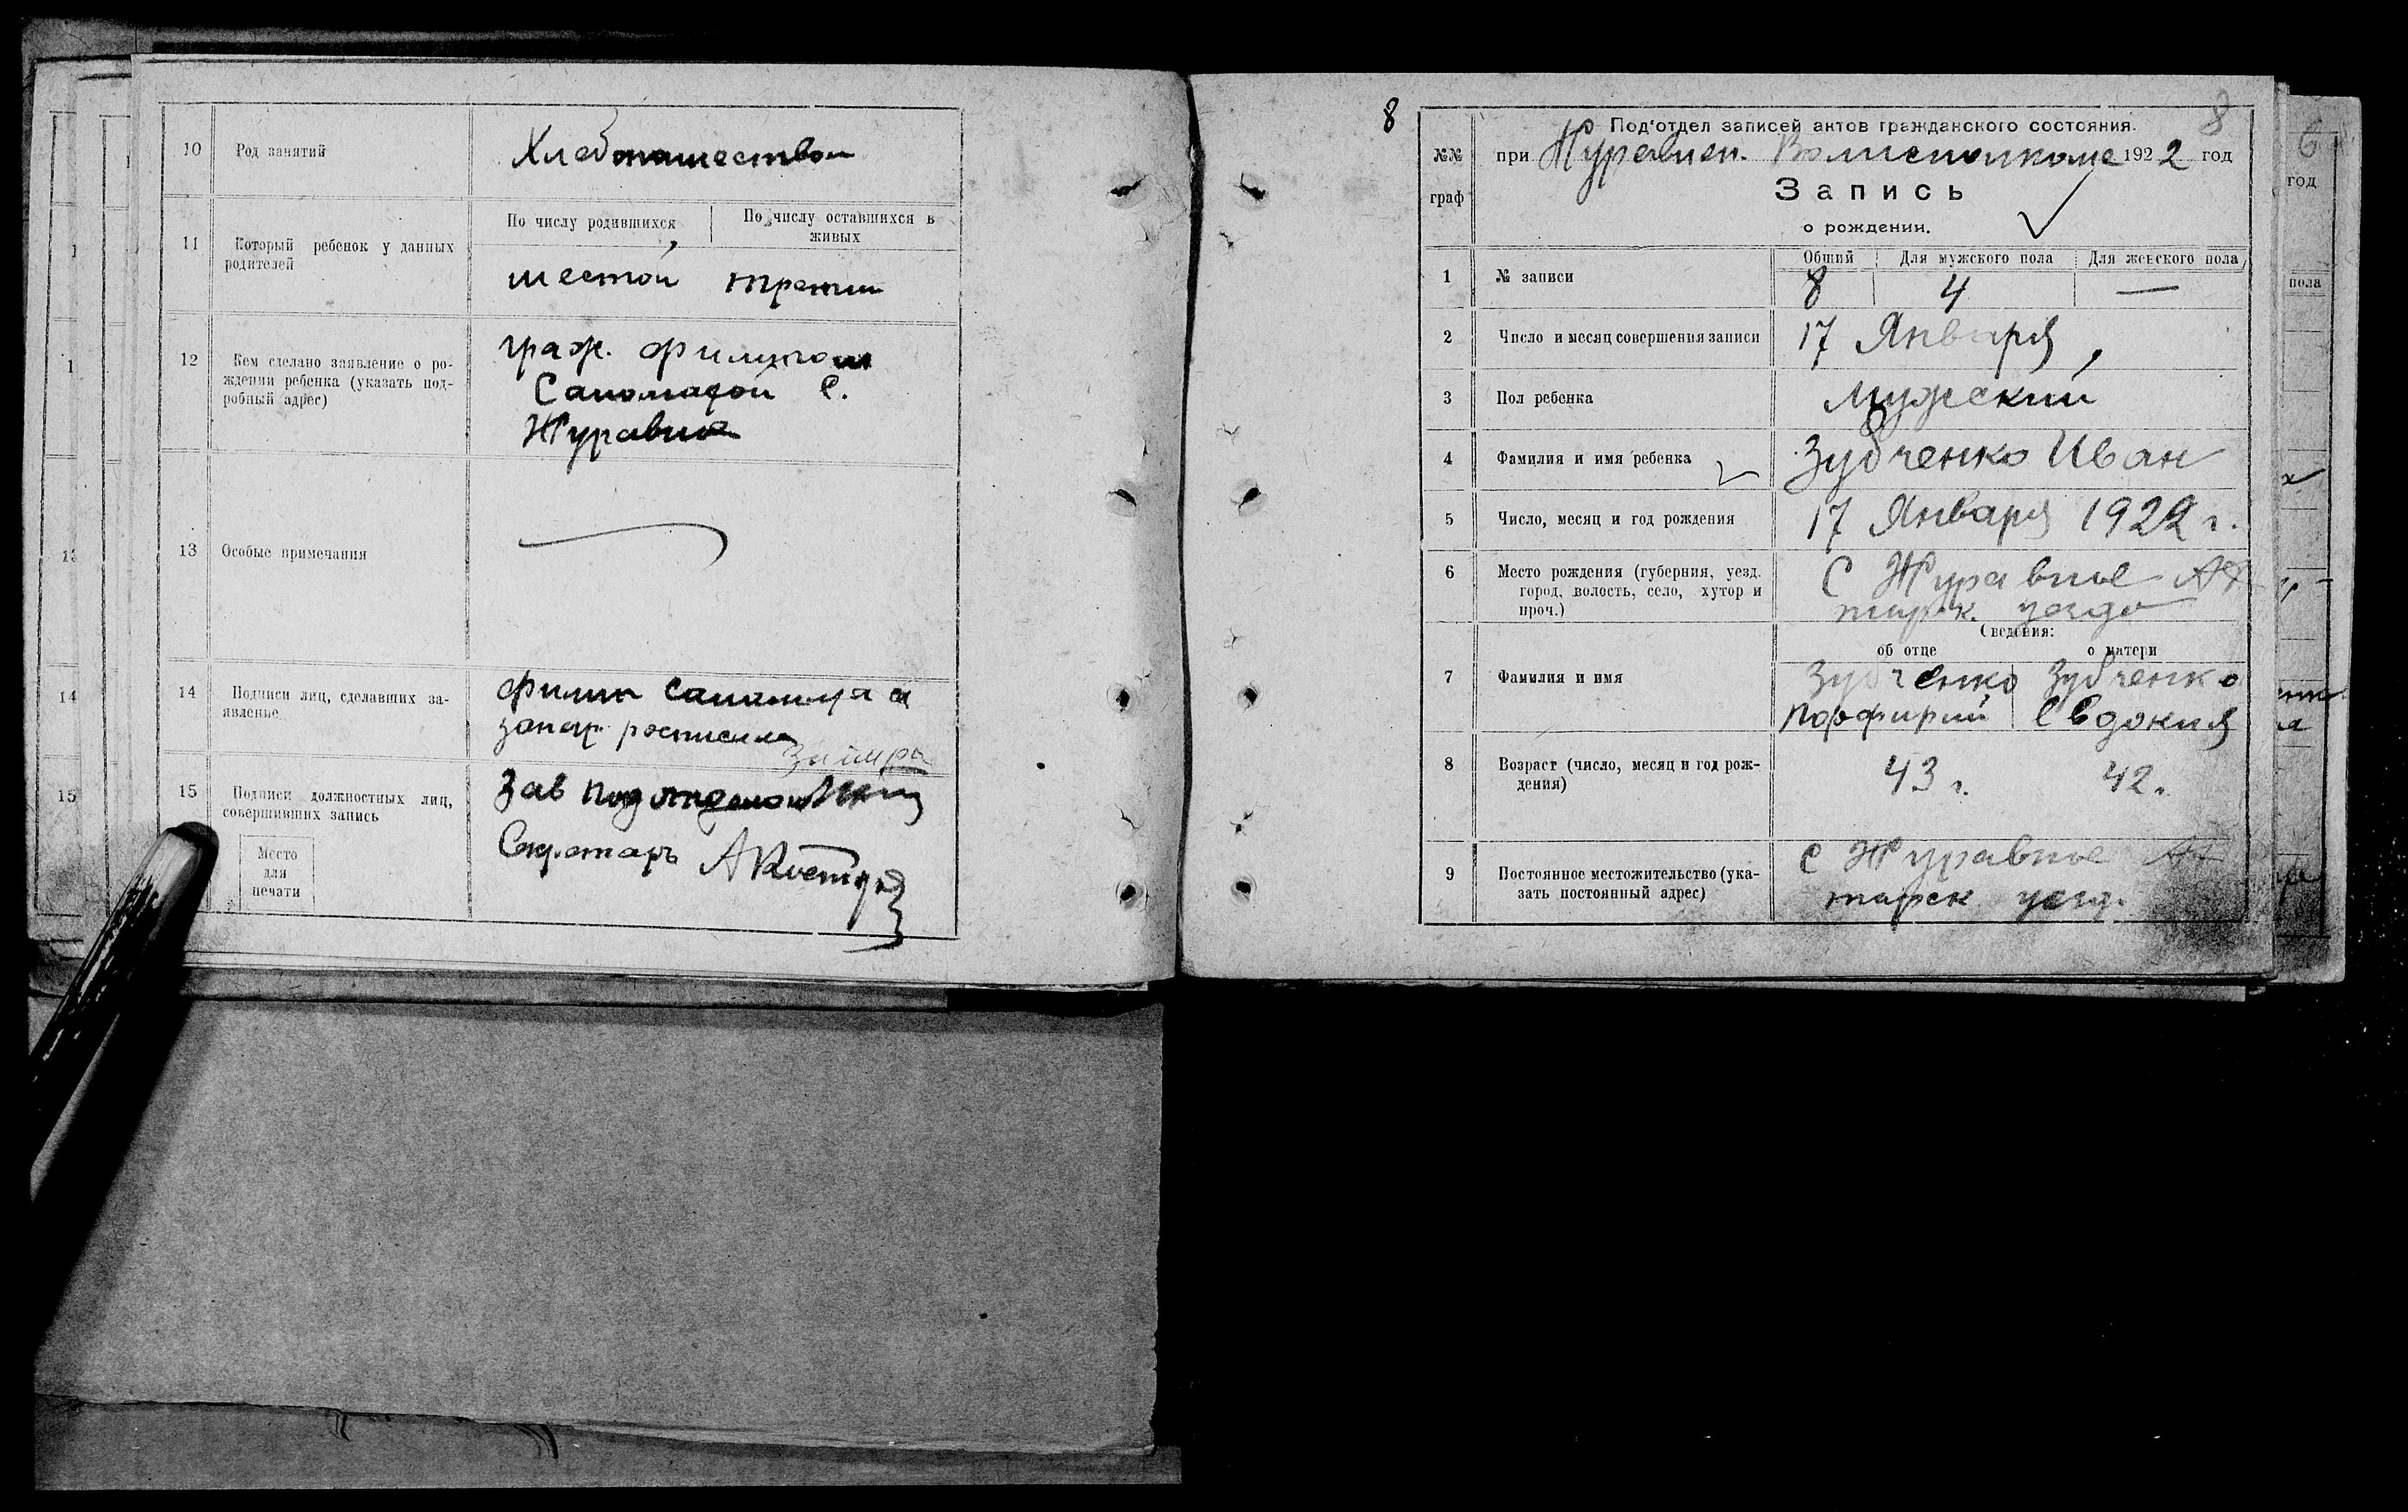 10 Род занятий Хлебопашеством
11 Который ребенок у данных родителей
По числу родившихся По числу оставшихся в живых
шестой третий
12 Кем сделано заявление о ро-
ждении ребенка (указать под-
робный адрес)
граж. Филипом
С.
Журавное
13 Особые примечания
14 Подписи лиц, сделавших за-
явление
Филип
15 Подписи должностных лиц,
совершивших запись
Зав подотделом
Секретарь
Место
для
печати
14
15
8
8
Под'отдел записей актов гражданского состояния.
№№
граф
при Журавнен. Волисполкоме 1922 год
Запись
о рождении.
Общий Для мужского пола Для женского пола
1 № записи 8 4 —
2 Число и месяц совершения записи 17 Января
3 Пол ребенка Мужский
4 Фамилия и имя ребенка Зубченко Иван
5 Число, месяц и год рождения 17 Января 1922 г.
6 Место рождения (губерния, уезд.
город, волость, село, хутор и
проч.)
С Журавное Ах
тырск. уезда
Сведения:
об отце о матери
7 Фамилия и имя Зубченко Зубченко
Порфирий Евдокия
8 Возраст (число, месяц и год рож-
дения)
43 г. 42 г.
9 Постоянное местожительство (ука-
зать постоянный адрес)
С Журавное Ах
тырск уезд.
6
год
пола